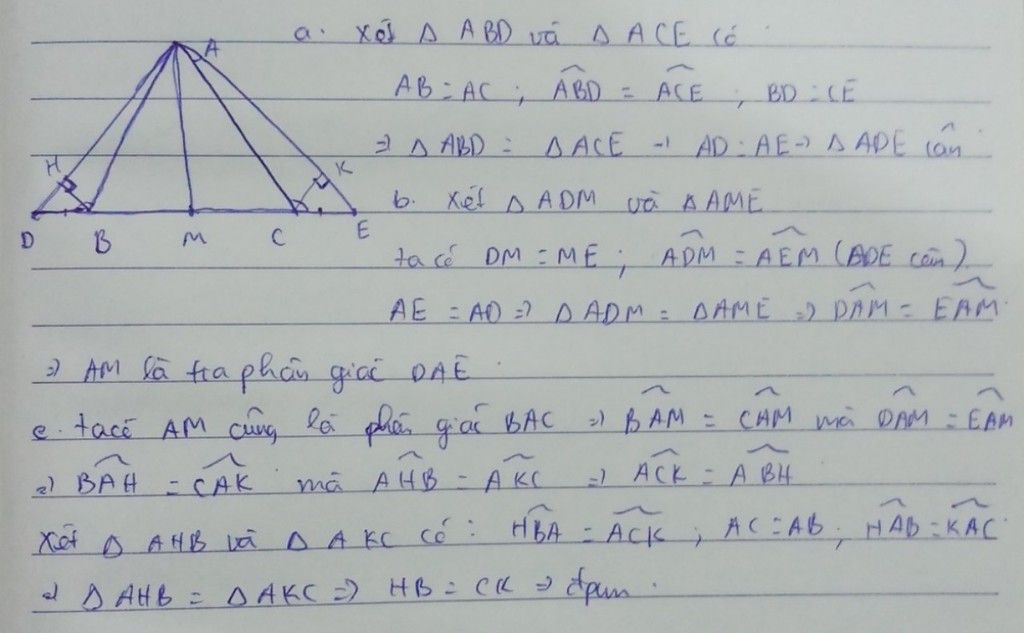 A
H
K
D B M C E
a. Xét Δ ABD và Δ ACE có
AB = AC ; ABD̂ = ACÊ ; BD = CE
=> Δ ABD = Δ ACE -> AD = AE -> Δ ADE cân
b. Xét Δ ADM và Δ AME
ta có DM = ME ; ADM̂ = AEM̂ (ADE cân)
AE = AD => Δ ADM = ΔAME => DAM̂ = EAM̂
=> AM là tia phân giác DAE
c. ta có AM cũng là phân giác BAC => BAM̂ = CAM̂ mà DAM̂ = EAM̂
=> BAĤ = CAK̂ mà AHB̂ = AKĈ => ACK̂ = ABĤ
Xét Δ AHB và Δ AKC có : HBÂ = ACK̂ ; AC = AB ; HAB̂ = KAĈ
=> Δ AHB = Δ AKC => HB = CK => đpcm .